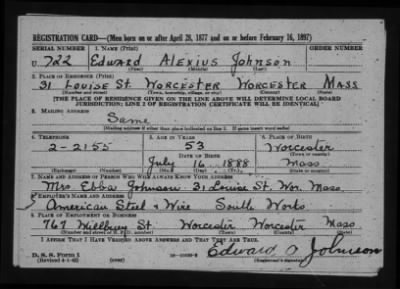 REGISTRATION CARD—(Men born on or after April 28, 1877 and on or before February 16, 1897)
SERIAL NUMBER 1. NAME (Print) ORDER NUMBER
U 722 Edward Alexius Johnson
(First) (Middle) (Last)
2. PLACE OF RESIDENCE (Print)
31 Louise St. Worcester Worcester Mass
(Number and street) (Town, township, village, or city) (County) (State)
[THE PLACE OF RESIDENCE GIVEN ON THE LINE ABOVE WILL DETERMINE LOCAL BOARD
JURISDICTION; LINE 2 OF REGISTRATION CERTIFICATE WILL BE IDENTICAL]
3. MAILING ADDRESS
Same
[Mailing address if other than place indicated on line 2. If same insert word same]
4. TELEPHONE 5. AGE IN YEARS 6. PLACE OF BIRTH
2-2155 53 Worcester
DATE OF BIRTH (Town or county)
July 16 1888 Mass
(Exchange) (Number) (Mo.) (Day) (Yr.) (State or country)
7. NAME AND ADDRESS OF PERSON WHO WILL ALWAYS KNOW YOUR ADDRESS
Mrs Ebba Johnson 31 Louise St. Wor. Mass
8. EMPLOYER'S NAME AND ADDRESS
American Steel & Wire South Works
9. PLACE OF EMPLOYMENT OR BUSINESS
767 Millbury St. Worcester Worcester Mass
(Number and street or R. F. D. number) (Town) (County) (State)
I AFFIRM THAT I HAVE VERIFIED ABOVE ANSWERS AND THAT THEY ARE TRUE.
D. S. S. Form 1
(Revised 4-1-42) (over) Edward A Johnson
(Registrant's signature)